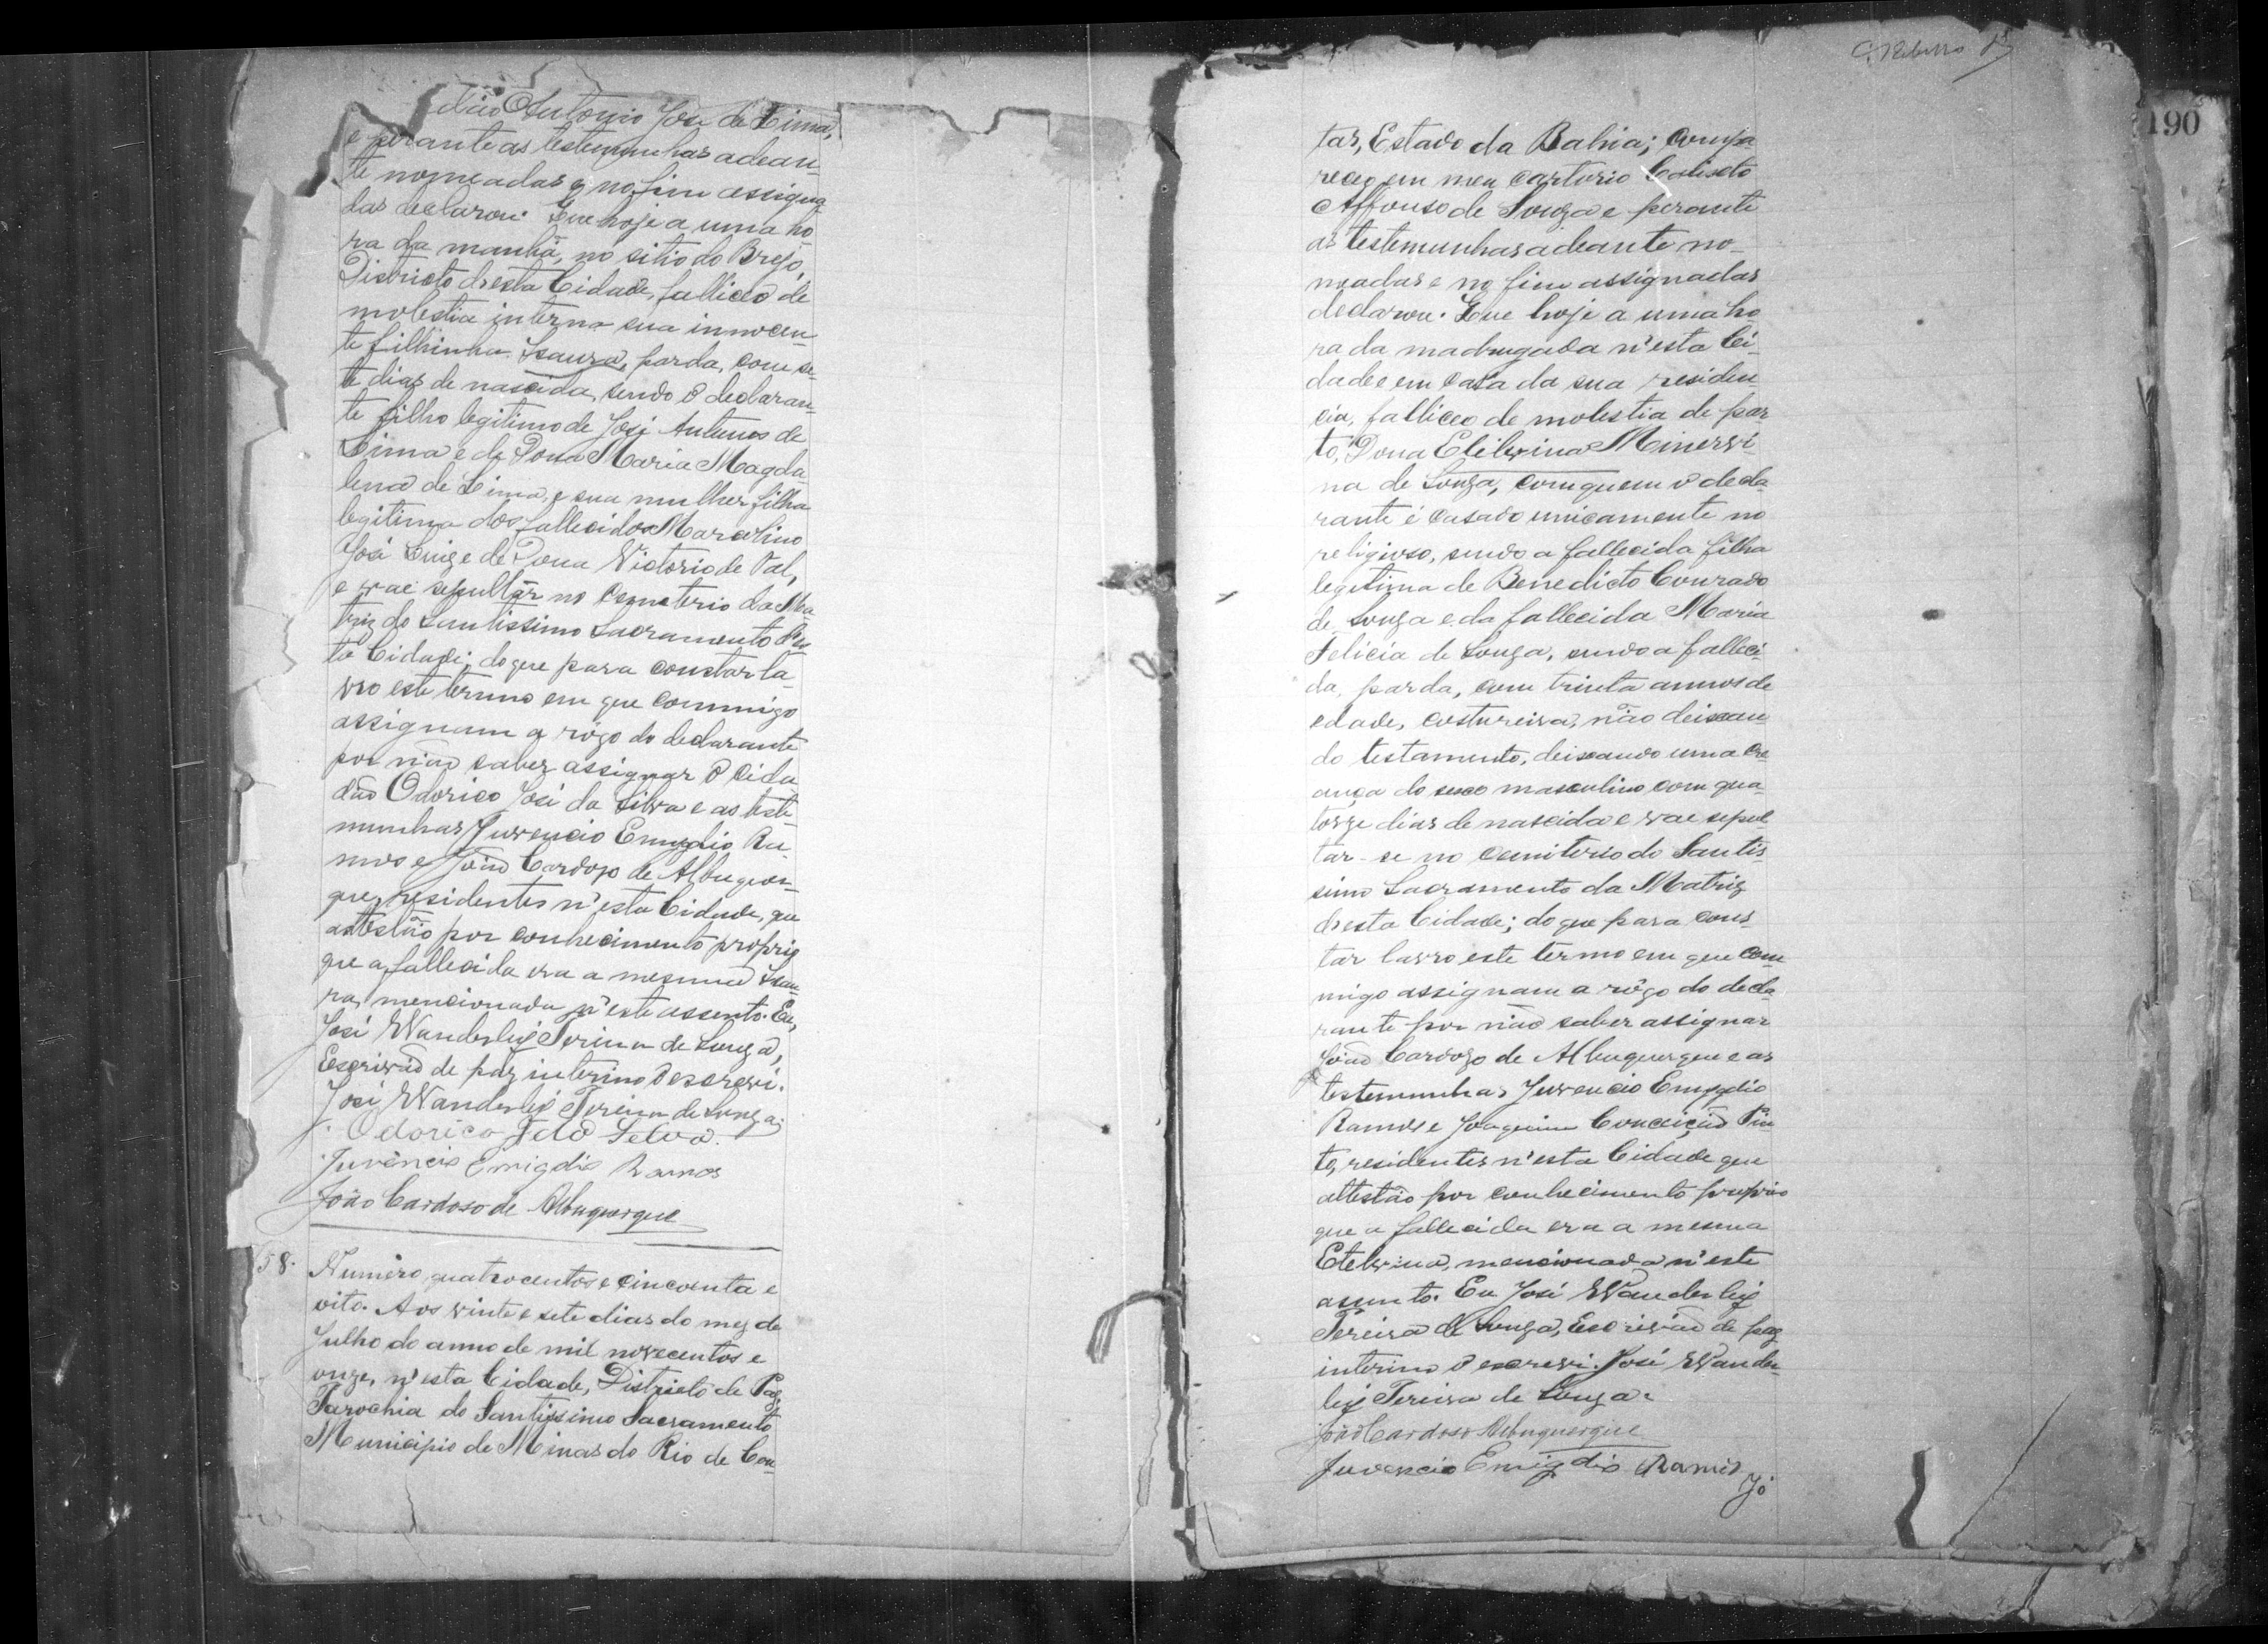 dão Antonio José de Lima,
e perante as testemunhas adean-
te nomeadas e no fim assigna-
das declarou: Que hoje a uma ho
ra da manhã, no sitio do Brejo,
Districto d'esta Cidade, falliceo de
molestia interna sua innocen-
te filhinha Isaura, parda, com se-
te dias de nascida, sendo o declaran-
te filho legitimo de José Antunes de
Lima e de Dona Maria Magda-
lena de Lima, e sua mulher filha
legitima dos fallecidos Marcolino
José Luiz e de Dona Victoria de Tal,
e vae sepultar no Cemeterio da Ma-
triz do Santissimo Sacramento d'es
ta Cidade; do que para constar la-
vro este termo em que commigo
assignam a rôgo do declarante
por não saber assignar o cida
dão Odorico José da Silva e as teste-
munhas Juvencio Emygdio Ra-
mos e João Cardozo de Albuquer-
que, residentes n'esta Cidade, que
attestão por conhecimento proprio
que a fallecida era a mesma Isau-
ra, mencionada n'este assento. Eu,
José Wanderley Pereira de Souza,
Escrivão de paz interino o escrevi.
José Wanderley Pereira de Souza.
Odorico J da Silva.
Juvêncio Emigdio Ramos
João Cardoso de Albuquerque
58.
Numero quatrocentos e cincoenta e
oito. Aos vinte e sete dias do mez de
Julho do anno de mil novecentos e
onze, n'esta Cidade, Districto de Paz,
Parochia do Santissimo Sacramento
Municipio de Minas do Rio de Con-
190
tas, Estado da Bahia; compa
receo em meu cartorio Calisto
Affonso de Souza e perante
as testemunhas adeante no-
meadas e no fim assignadas
declarou: Que hoje a uma ho
ra da madrugada n'esta Ci-
dade e em casa da sua residen
cia, falliceo de molestia de par
to, Dona Etelvina Minervi-
na de Souza, com quem o decla
rante é casado unicamente no
religioso, sendo a fallecida filha
legitima de Benedicto Conrado
de Souza e da fallecida Maria
Felicia de Souza, sendo a falleci-
da, parda, com trinta annos de
edade, costureira, não deixan
do testamento, deixando uma cre
ança do sexo masculino com qua-
torze dias de nascida e vae sepul
tar-se no Cemiterio do Santis-
simo Sacramento da Matriz
d'esta Cidade; do que para cons-
tar lavro este termo em que com
migo assignam a rôgo do decla-
rante por não saber assignar
João Cardozo de Albuquerque e as
testemunhas Juvencio Emygdio
Ramos e Joaquim Conceição Pin
to, residentes n'esta Cidade que
attestão por conhecimento proprio
que a fallecida era a mesma
Etelvina, mencionada n'este
assento. Eu José Wanderley
Pereira de Souza, Escrivão de paz
interino o escrevi. José Wander-
ley Pereira de Souza.
João Cardoso Albuquerque
Juvencio Emigdio Ramos
Jo